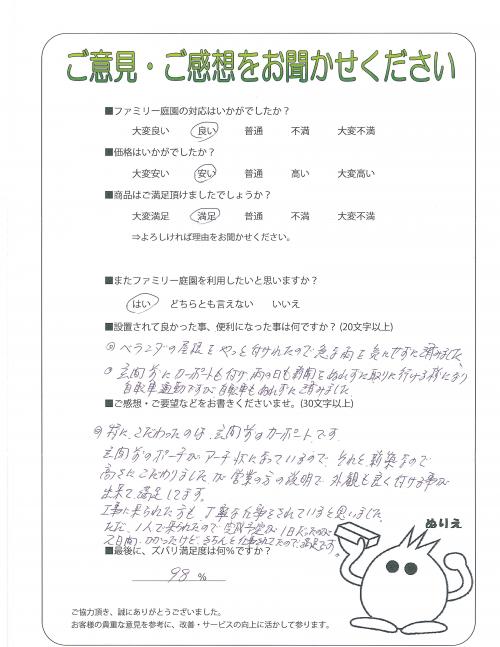 ご意見・ご感想をお聞かせください
■ファミリー庭園の対応はいかがでしたか？
大変良い 良い 普通 不満 大変不満
■価格はいかがでしたか？
大変安い 安い 普通 高い 大変高い
■商品はご満足頂けましたでしょうか？
大変満足 満足 普通 不満 大変不満
⇒よろしければ理由をお聞かせください。
■またファミリー庭園を利用したいと思いますか？
はい どちらとも言えない いいえ
■設置されて良かった事、便利になった事は何ですか？(20文字以上)
ベランダの屋根をやっと付けれたので急な雨を気にせずに済みました
玄関前にカーポートも付け雨の日も新聞をぬれずに取りに行ける様になり
自転車通勤ですが自転車もぬれずに済みました
■ご感想・ご要望などをお書きくださいませ。(30文字以上)
特に、こだわったのは、玄関前のカーポートです。
玄関前のポーチがアーチ状になっているので、それと、新築なので
高さにこだわりましたが営業の方の説明で外観も良く付ける事が
出来て満足してます。
工事に来られた方も丁寧な仕事をされていると思いました。
ただ、1人で来られたので 予定が1日だったのが
2日間かかったけど、きちんと仕事されてたので満足です。
■最後に、ズバリ満足度は何％ですか？
98 %
ぬりえ
ご協力頂き、誠にありがとうございました。
お客様の貴重な意見を参考に、改善・サービスの向上に活かして参ります。